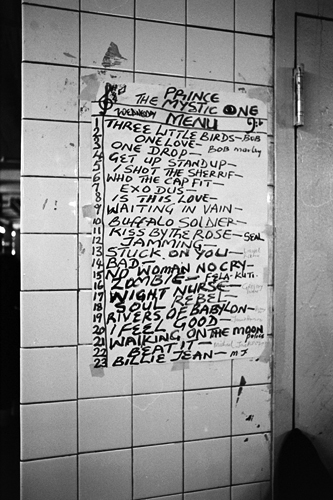 THE PRINCE
MYSTIC ONE
WEDNESDAY MENU
1 THREE LITTLE BIRDS - BOB
2 ONE LOVE -
3 ONE DROP - BOB marley
4 GET UP STAND UP -
5 I SHOT THE SHERRIF -
6 WHO THE CAP FIT -
7 EXODUS -
8 IS THIS LOVE -
9 WAITING IN VAIN -
10 BUFFALO SOLDIER -
11 KISS BY THE ROSE - SEAL
12 JAMMING -
13 STUCK ON YOU -
14 BAD -
15 NO WOMAN NO CRY -
16 ZOMBIE - FELA-KUTI.
17 NIGHT NURSE -
18 SOUL REBEL -
19 RIVERS OF BABYLON -
20 I FEEL GOOD -
21 WALKING ON THE MOON Police
22 BEAT IT - Michael Jackson
23 BILLIE JEAN - MJ